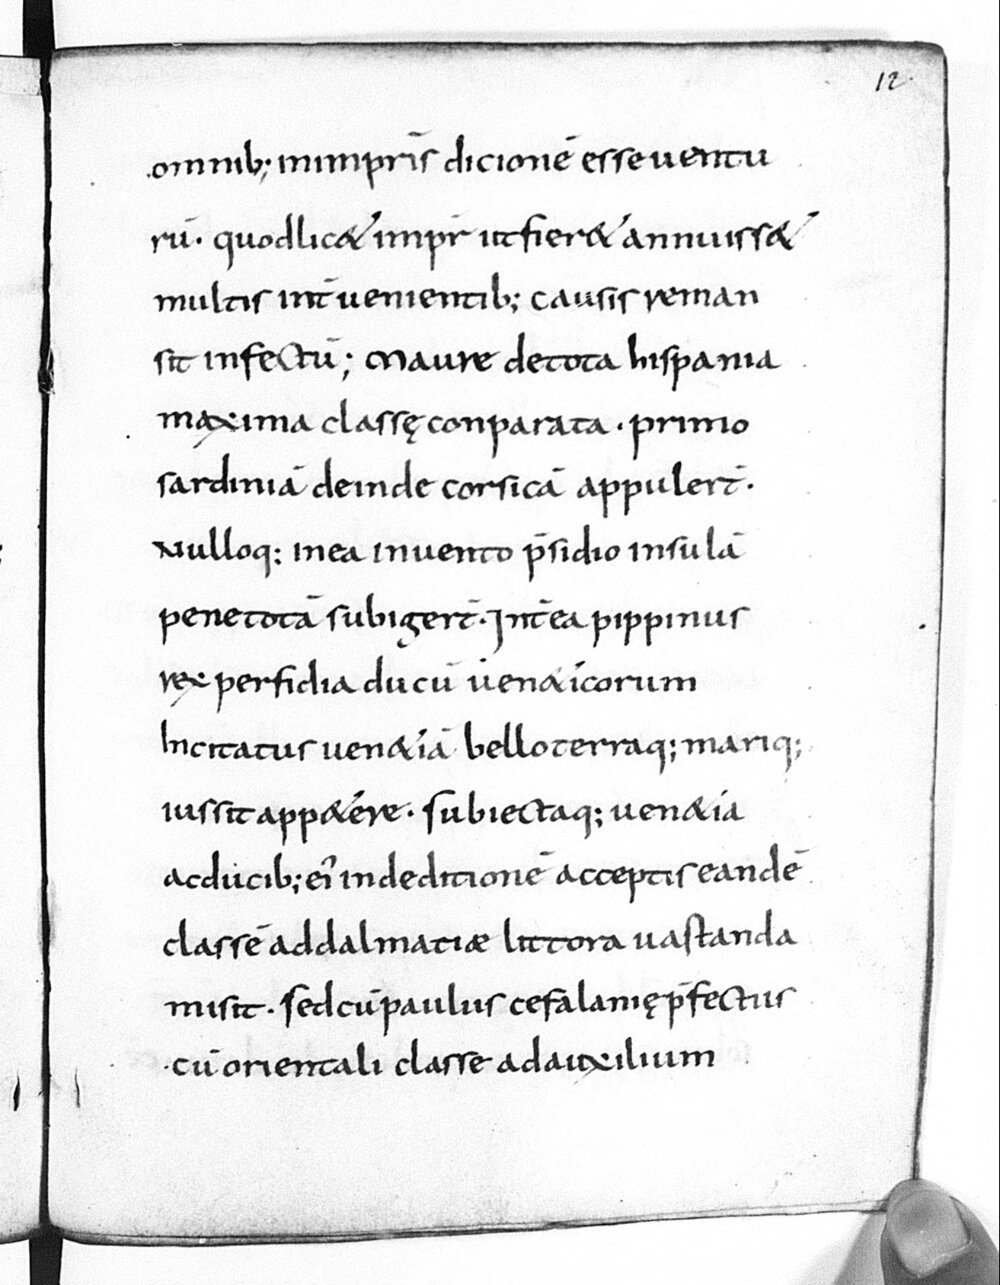 12
omnib; inimpr̄is dicionē esse uentu
rū. quodlic& impr̄ ut fier& annuiss&
multis int̄uenientib; causis reman
sit infectū; Maure detota hispania
maxima classę conparata. primo
sardiniā deinde corsicā appulert̄.
Nulloq; inea inuento p̄sidio insulā
penetotā subigert̄. Int̄ea pippinus
rex perfidia ducū uen&icorum
Incitatus uen&iā bello terraq; mariq;
iussit app&ere. subiectaq; uen&ia
acducib; ei indeditionē acceptis eandē
classē addalmatiæ littora uastanda
misit. sedcū paulus cefalanię p̄fectus
cū orientali classe adauxilium